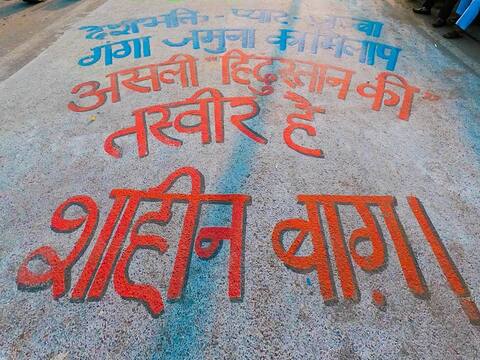 देशभक्ति - प्यार -
गंगा जमुना का मिलाप
असली "हिंदुस्तान की"
तस्वीर है
शाहीन बाग़।